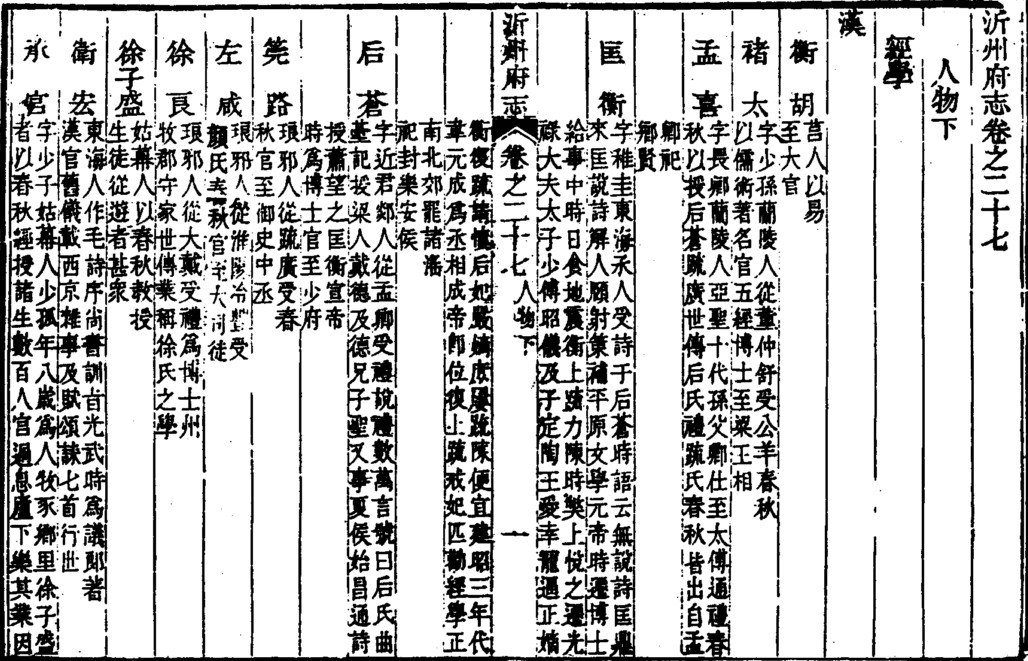 沂州府志卷之二十七
人物下
經學
漢
衡胡
莒人以易
至大官
褚太
字少孫蘭陵人從董仲舒受公羊春秋
以儒術著名官五經博士至梁王相
孟喜
字長卿蘭陵人亞聖十代孫父卿仕至太傅通禮春
秋以授后蒼疏廣世傳后氏禮疏氏春秋皆出自孟
卿祀
鄉賢
匡衡
字稚圭東海承人受詩于后蒼時語云無說詩匡鼎
來匡說詩解人頤射策補平原文學元帝時遷博士
給事中時日食地震衡上疏力陳時弊上悅之遷光
祿大夫太子少傅昭儀及子定陶王愛幸寵過正嫡
沂州府志
卷之二十七 人物下
一
衡復疏請慎后妃嚴嫡庶屢疏陳便宜建昭三年代
韋元成為丞相成帝卽位復上疏戒妃匹勸經學正
南北郊罷諸淫
祀封樂安侯
后蒼
字近君郯人從孟卿受禮說禮數萬言號曰后氏曲
臺記授梁人戴德及德兄子聖又事夏侯始昌通詩
授蕭望之匡衡宣帝
時為博士官至少府
筦路
琅邪人從疏廣受春
秋官至御史中丞
左咸
琅邪人從淮陽冷豐受
顏氏春秋官至大司徒
徐良
琅邪人從大戴受禮為博士州
牧郡守家世傳業稱徐氏之學
徐子盛
姑幕人以春秋教授
生徒從遊者甚衆
衛宏
東海人作毛詩序尚書訓旨光武時為議郞著
漢官舊儀載西京雜事及賦頌誄七首行世
承宮
字少子姑幕人少孤年八歲為人牧豕鄉里徐子盛
者以春秋經授諸生數百人宮過息廬下樂其業因